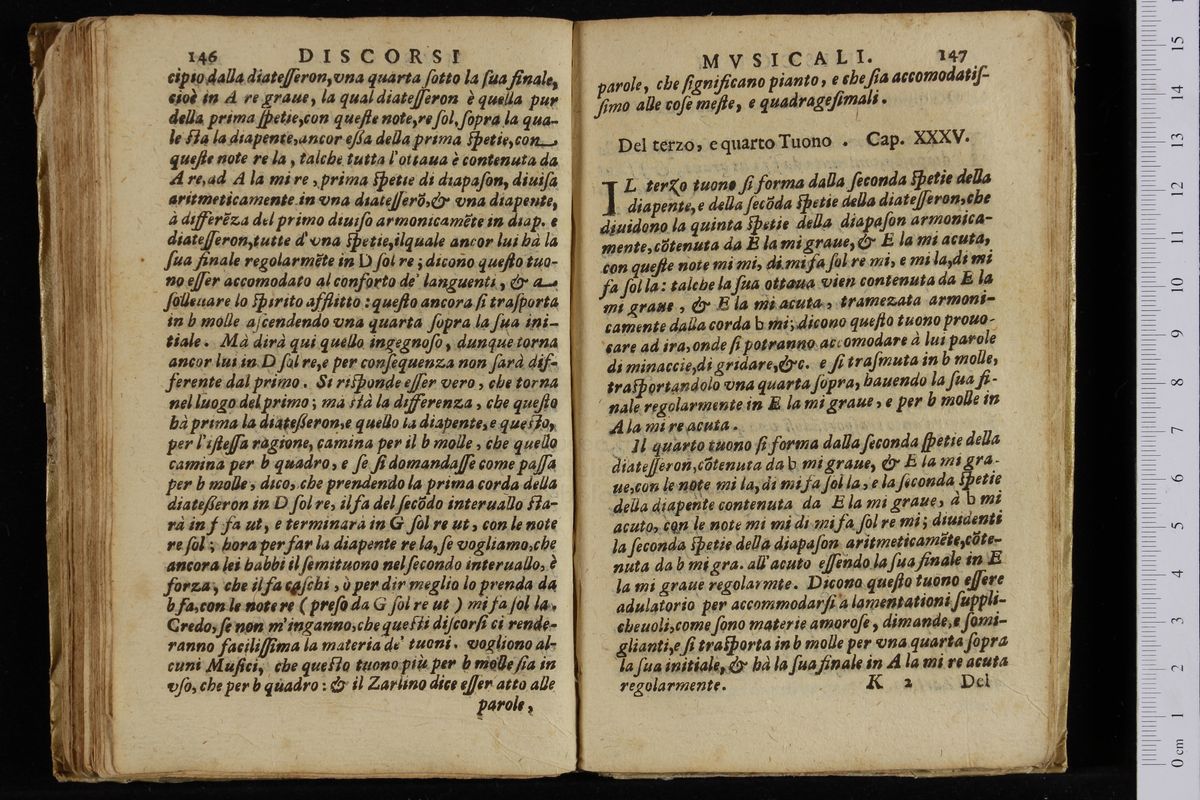 146 DISCORSI
cipio dalla diatesseron, vna quarta sotto la sua finale,
cioè in A re graue, la qual diatesseron è quella pur
della prima spetie, con queste note, re sol, sopra la qua-
le sta la diapente, ancor essa della prima spetie, con
queste note re la, talche tutta l'ottaua è contenuta da
A re, ad A la mi re, prima spetie di diapason, diuisa
aritmeticamente in vna diatesserõ, & vna diapente,
à differẽza del primo diuiso armonicamẽte in diap. e
diatesseron, tutte d'vna spetie, ilquale ancor lui hà la
sua finale regolarmẽte in D sol re; dicono questo tuo-
no esser accomodato al conforto de' languenti, & a
solleuare lo spirito afflitto: questo ancora si trasporta
in b molle ascendendo vna quarta sopra la sua ini-
tiale. Mà dirà qui quello ingegnoso, dunque torna
ancor lui in D sol re, e per consequenza non sarà dif-
ferente dal primo. Si risponde esser vero, che torna
nel luogo del primo; ma stà la differenza, che questo
hà prima la diatesseron, e quello la diapente, e questo,
per l'istessa ragione, camina per il b molle, che quello
camina per b quadro, e se si domandasse come passa
per b molle, dico, che prendendo la prima corda della
diatesseron in D sol re, il fa del secõdo interuallo sta-
rà in f fa ut, e terminarà in G sol re ut, con le note
re sol; hora per far la diapente re la, se vogliamo, che
ancora lei habbi il semituono nel secondo interuallo, è
forza, che il fa caschi, ò per dir meglio lo prenda da
b fa, con le note re (preso da G sol re ut) mi fa sol la.
Credo, se non m'inganno, che questi discorsi ci rende-
ranno facilissima la materia de' tuoni. vogliono al-
cuni Musici, che questo tuono più per b molle sia in
vso, che per b quadro: & il Zarlino dice esser atto alle
parole,
MVSICALI. 147
parole, che significano pianto, e che sia accomodatis-
simo alle cose meste, e quadragesimali.
Del terzo, e quarto Tuono. Cap. XXXV.
IL terzo tuono si forma dalla seconda spetie della
diapente, e della secõda spetie della diatesseron, che
diuidono la quinta spetie della diapason armonica-
mente, cõtenuta da E la mi graue, & E la mi acuta,
con queste note mi mi, di mi fa sol re mi, e mi la, di mi
fa sol la: talche la sua ottaua vien contenuta da E la
mi graue, & E la mi acuta, tramezata armoni-
camente dalla corda b mi; dicono questo tuono prouo-
care ad ira, onde si potranno accomodare à lui parole
di minaccie, di gridare, &c. e si trasmuta in b molle,
trasportandolo vna quarta sopra, hauendo la sua fi-
nale regolarmente in E la mi graue, e per b molle in
A la mi re acuta.
Il quarto tuono si forma dalla seconda spetie della
diatesseron, cõtenuta da b mi graue, & E la mi gra-
ue, con le note mi la, di mi fa sol la, e la seconda spetie
della diapente contenuta da E la mi graue, à b mi
acuto, con le note mi mi di mi fa sol re mi; diuidenti
la seconda spetie della diapason aritmeticamẽte, cõte-
nuta da b mi gra. all'acuto essendo la sua finale in E
la mi graue regolarmte. Dicono questo tuono essere
adulatorio per accommodarsi a lamentationi suppli-
cheuoli, come sono materie amorose, dimande, e somi-
glianti, e si trasporta in b molle per vna quarta sopra
la sua initiale, & hà la sua finale in A la mi re acuta
regolarmente. K 2 Del
0 cm 1 2 3 4 5 6 7 8 9 10 11 12 13 14 15